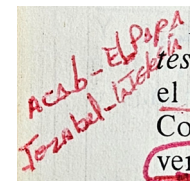 Acab - El Papa
Jezabel - Iglesia
tes
el
Co
ver